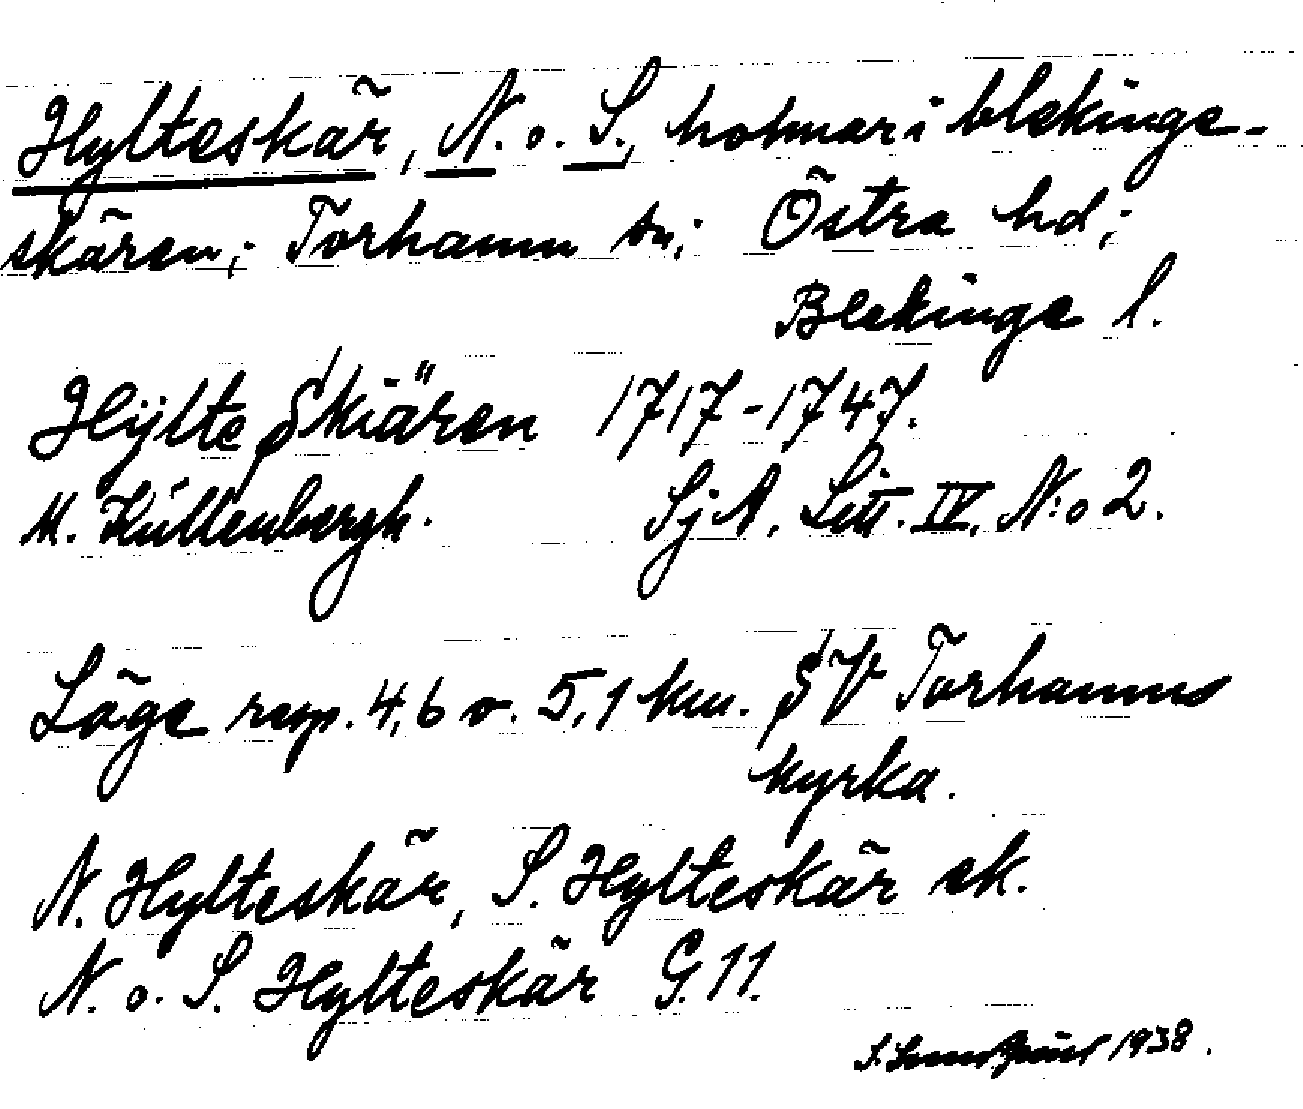 Hylteskär, N. o. S., holmar i blekinge-
skären; Torhamn sn; Östra hd;
Blekinge l.
Hÿlte Skiären 1717-1747.
M. Kúllenbergh. SjA. Litt. IV. N:o 2.
Läge resp. 4,6 o. 5,1 km. SV Torhamns
kyrka.
N. Hylteskär, S. Hylteskär sk.
N. o. S. Hylteskär G. 11.
S. 1938.